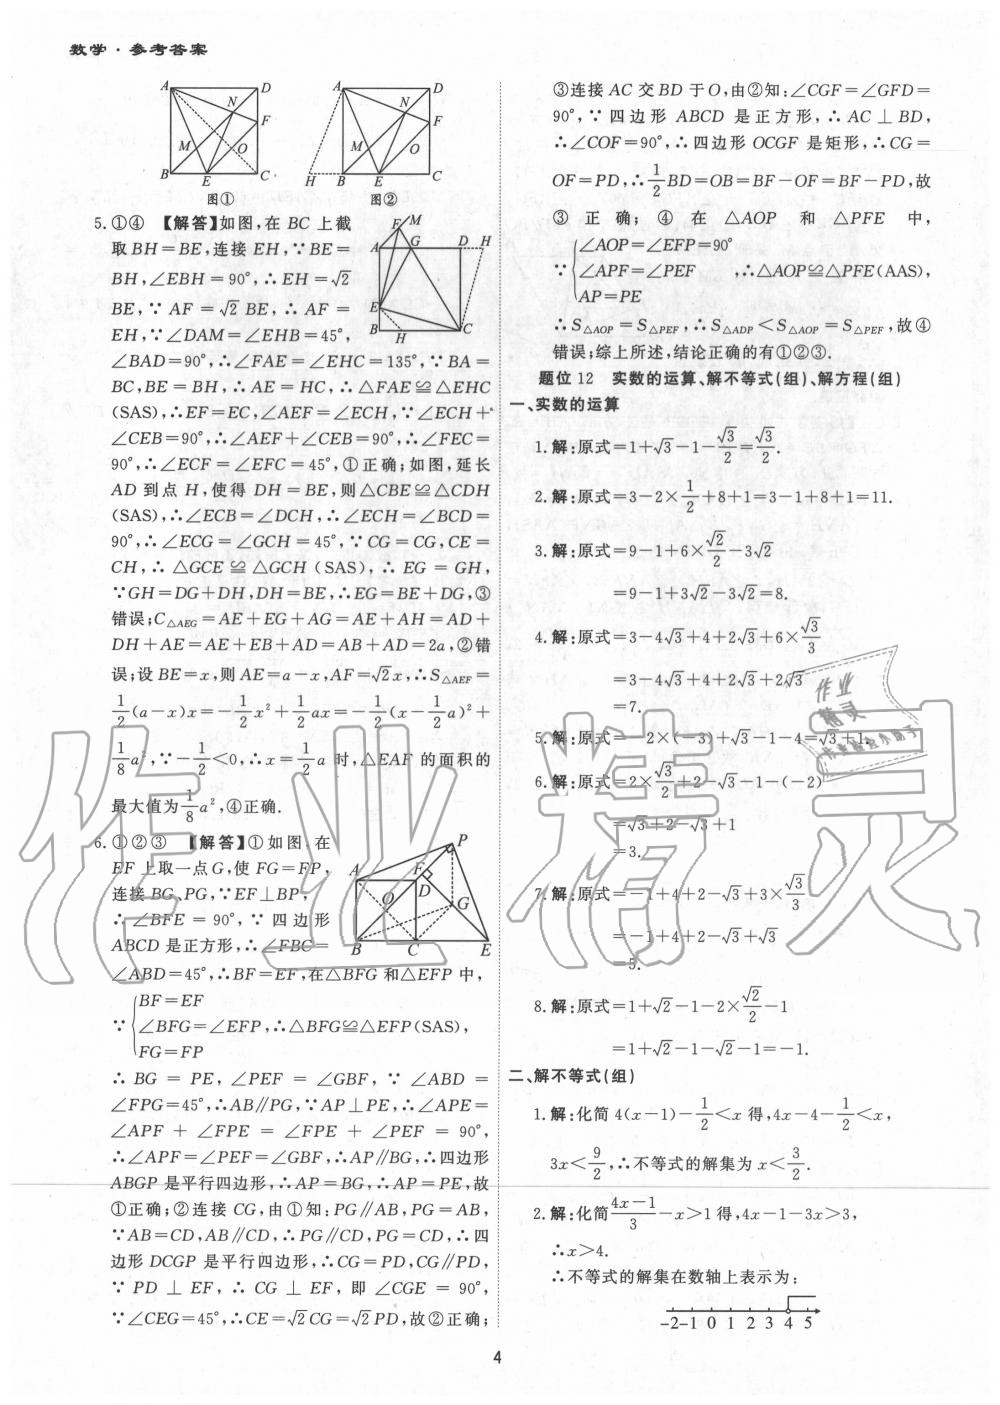 数学·参考答案
A D N F M O B E C
图①
A D N F M O H B E C
图②
5.①④ 【解答】如图,在 BC 上截
取 BH=BE,连接 EH,∵BE=
BH,∠EBH=90°,∴EH=√2
BE,∵AF=√2 BE,∴AF=
EH,∵∠DAM=∠EHB=45°,
∠BAD=90°,∴∠FAE=∠EHC=135°,∵BA=
BC,BE=BH,∴AE=HC,∴△FAE≌△EHC
(SAS),∴EF=EC,∠AEF=∠ECH,∵∠ECH+
∠CEB=90°,∴∠AEF+∠CEB=90°,∴∠FEC=
90°,∴∠ECF=∠EFC=45°,①正确;如图,延长
AD 到点 H,使得 DH=BE,则△CBE≌△CDH
(SAS),∴∠ECB=∠DCH,∴∠ECH=∠BCD=
90°,∴∠ECG=∠GCH=45°,∵CG=CG,CE=
CH,∴△GCE≌△GCH(SAS),∴EG=GH,
∵GH=DG+DH,DH=BE,∴EG=BE+DG,③
错误;C△AEG=AE+EG+AG=AE+AH=AD+
DH+AE=AE+EB+AD=AB+AD=2a,②错
误;设 BE=x,则 AE=a-x,AF=√2x,∴S△AEF=
1/2(a-x)x=-1/2x²+1/2ax=-1/2(x-1/2a)²+
1/8a²,∵-1/2<0,∴x=1/2a 时,△EAF 的面积的
最大值为1/8a²,④正确.
6.①②③ 【解答】①如图,在
EF 上取一点 G,使 FG=FP,
连接 BG、PG,∵EF⊥BP,
∴∠BFE=90°,∵四边形
ABCD 是正方形,∴∠FBC=
∠ABD=45°,∴BF=EF,在△BFG 和△EFP 中,
BF=EF
∵ ∠BFG=∠EFP,∴△BFG≌△EFP(SAS),
FG=FP
∴BG=PE,∠PEF=∠GBF,∵∠ABD=
∠FPG=45°,∴AB∥PG,∵AP⊥PE,∴∠APE=
∠APF+∠FPE=∠FPE+∠PEF=90°,
∴∠APF=∠PEF=∠GBF,∴AP∥BG,∴四边形
ABGP 是平行四边形,∴AP=BG,∴AP=PE,故
①正确;②连接 CG,由①知:PG∥AB,PG=AB,
∵AB=CD,AB∥CD,∴PG∥CD,PG=CD,∴四
边形 DCGP 是平行四边形,∴CG=PD,CG∥PD,
∵PD⊥EF,∴CG⊥EF,即∠CGE=90°,
∵∠CEG=45°,∴CE=√2CG=√2PD,故②正确;
③连接 AC 交 BD 于 O,由②知:∠CGF=∠GFD=
90°,∵四边形 ABCD 是正方形,∴AC⊥BD,
∴∠COF=90°,∴四边形 OCGF 是矩形,∴CG=
OF=PD,∴1/2BD=OB=BF-OF=BF-PD,故
③正确;④在△AOP 和△PFE 中,
∠AOP=∠EFP=90°
∵ ∠APF=∠PEF ,∴△AOP≌△PFE(AAS),
AP=PE
∴S△AOP=S△PEF,∴S△ADP<S△AOP=S△PEF,故④
错误;综上所述,结论正确的有①②③.
题位 12 实数的运算、解不等式(组)、解方程(组)
一、实数的运算
1.解:原式=1+√3-1-√3/2=√3/2.
2.解:原式=3-2×1/2+8+1=3-1+8+1=11.
3.解:原式=9-1+6×√2/2-3√2
=9-1+3√2-3√2=8.
4.解:原式=3-4√3+4+2√3+6×√3/3
=3-4√3+4+2√3+2√3
=7.
5.解:原式=-2×(-3)+√3-1-4=√3+1.
6.解:原式=2×√3/2+2-√3-1-(-2)
=√3+2-√3+1
=3.
7.解:原式=-1+4+2-√3+3×√3/3
=-1+4+2-√3+√3
=5.
8.解:原式=1+√2-1-2×√2/2-1
=1+√2-1-√2-1=-1.
二、解不等式(组)
1.解:化简 4(x-1)-1/2<x 得,4x-4-1/2<x,
3x<9/2,∴不等式的解集为 x<3/2.
2.解:化简(4x-1)/3-x>1 得,4x-1-3x>3,
∴x>4.
∴不等式的解集在数轴上表示为:
-2-1 0 1 2 3 4 5
4
作业精灵